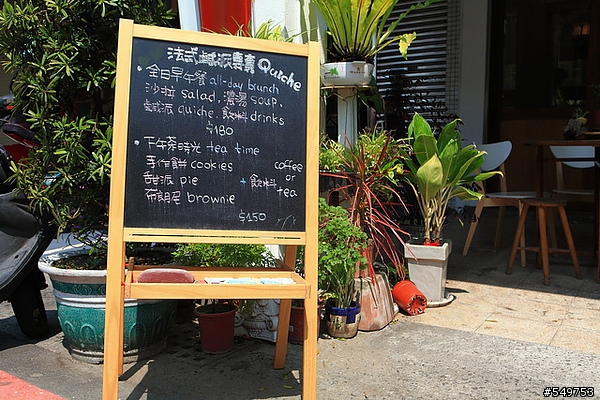 法式鹹派專賣 Quiche
• 全日早午餐 all-day brunch
沙拉 salad, 濃湯 soup,
鹹派 quiche, 飲料 drinks
$180
• 下午茶時光 tea time
手作餅 cookies
甜派 pie
布朗尼 brownie
+ 飲料
coffee
or
tea
$150
#549753